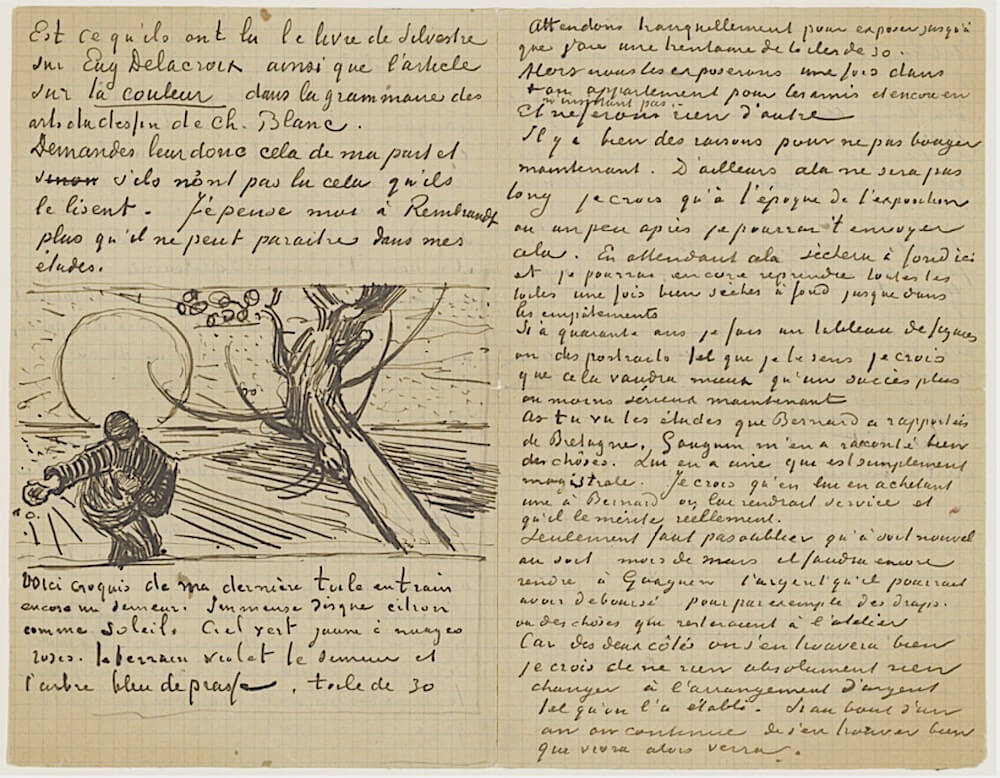 Est ce qu'ils ont lu le livre de Silvestre
sur Eug Delacroix ainsi que l'article
sur la couleur dans la grammaire des
arts du dessin de Ch. Blanc.
Demandes leur donc cela de ma part et
sinon s'ils n'ont pas lu cela qu'ils
le lisent. J'épense moi à Rembrandt
plus qu'il ne peut paraitre dans mes
études.
Voici croquis de ma dernière toile en train
encore un semeur. Immense disque citron
comme soleil. Ciel vert jaune à nuages
roses. le terrain violet le semeur et
l'arbre bleu de prusse. toile de 30
Attendons tranquillement pour exposer jusqu'à
que j'aie une trentaine de toiles de 30.
Alors nous les exposerons une fois dans
ton appartement pour les amis et encore en
n'insistant pas.
Et ne ferons rien d'autre
Il y a bien des raisons pour ne pas bouger
maintenant. D'ailleurs cela ne sera pas
long je crois qu'à l'époque de l'exposition
ou un peu après je pourrai t'envoyer
cela. En attendant cela sèchera à fond ici
et je pourrai encore reprendre toutes les
toiles une fois bien sèches à fond jusque dans
les empâtements
Si à quarante ans je fais un tableau de figures
ou des portraits tel que je le sens je crois
que cela vaudra mieux qu'un succès plus
ou moins sérieux maintenant
As tu vu les études que Bernard a rapportées
de Bretagne, Gauguin m'en a raconté bien
des chôses. Lui en a une que est simplement
magistrale. Je crois qu'en lui en achetant
une à Bernard on lui rendrait service et
qu'il le mérite réellement.
Seulement faut pas oublier qu'à soit nouvel
an soit mois de mars il faudra encore
rendre à Gauguin l'argent qu'il pourrait
avoir deboursé pour par exemple des draps.
ou des choses qui resteraient à l'atelier
Car des deux côtés on s'en trouvera bien
je crois de ne rien absolument rien
changer à l'arrangement d'argent
tel qu'on l'a établi. Si au bout d'un
an on continue de s'en trouver bien
que vivra alors verra.